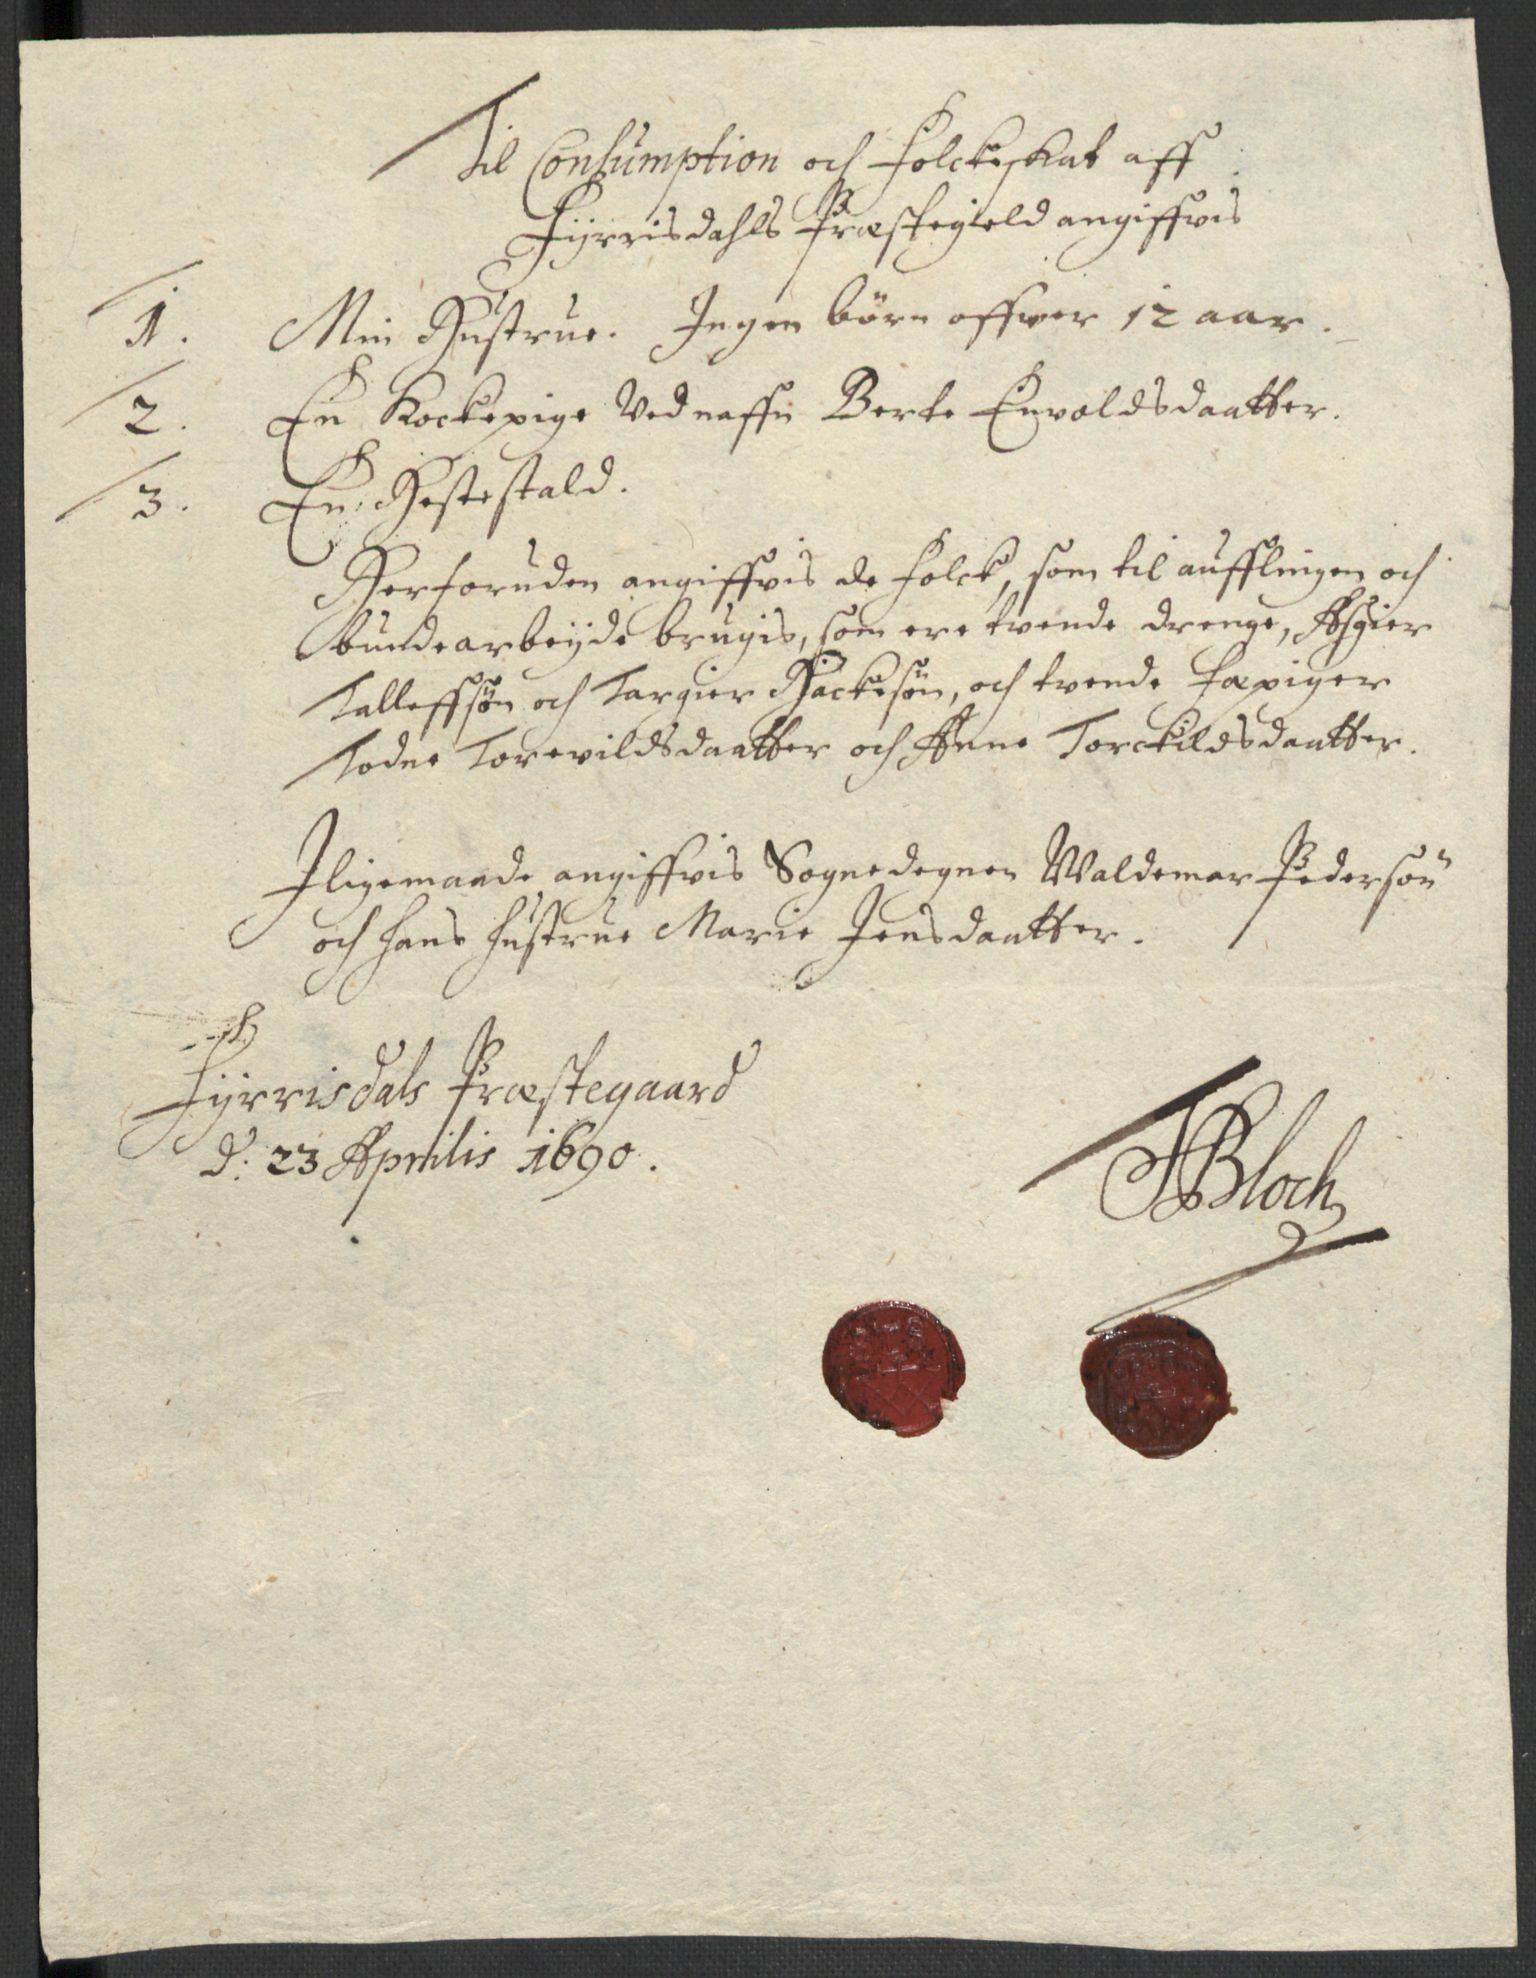 Til Consumption och Folckeskat aff
Fyrrisdahls Præstegield angiffvis
1. Min Hustrue. Ingen börn offver 12 aar.
2. En Kockepige Ved naffn Berte Envoldsdaatter.
3. En Hestestald.
Herforuden angiffvis de folck, som til aufflingen och
bundearbeyde brugis, som ere tvende drenge, Asgier
Talleffsøn och Targier Hackesøn, och tvende fæpiger
Todne Torevildsdaatter och Anne Torckildsdaatter.
Iligemaade angiffvis Sognedegnen Waldemar Pedersøn
och hans hustrue Marie Jensdaatter.
Fyrrisdals Præstegaard
d: 23 Aprilis 1690.
Bloch